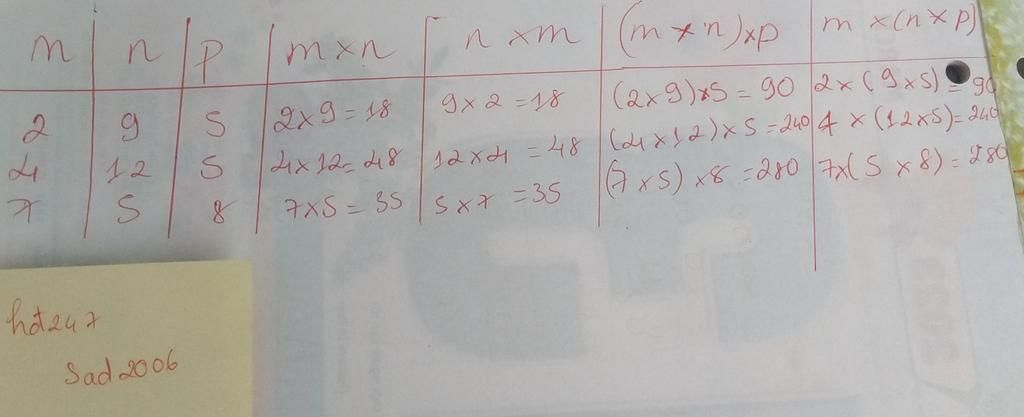 m n p m × n n × m (m × n) × p m × (n × p)
2 9 5 2 × 9 = 18 9 × 2 = 18 (2 × 9) × 5 = 90 2 × (9 × 5) = 90
4 12 5 4 × 12 = 48 12 × 4 = 48 (4 × 12) × 5 = 240 4 × (12 × 5) = 240
7 5 8 7 × 5 = 35 5 × 7 = 35 (7 × 5) × 8 = 280 7 × (5 × 8) = 280
hot247
Sad2006